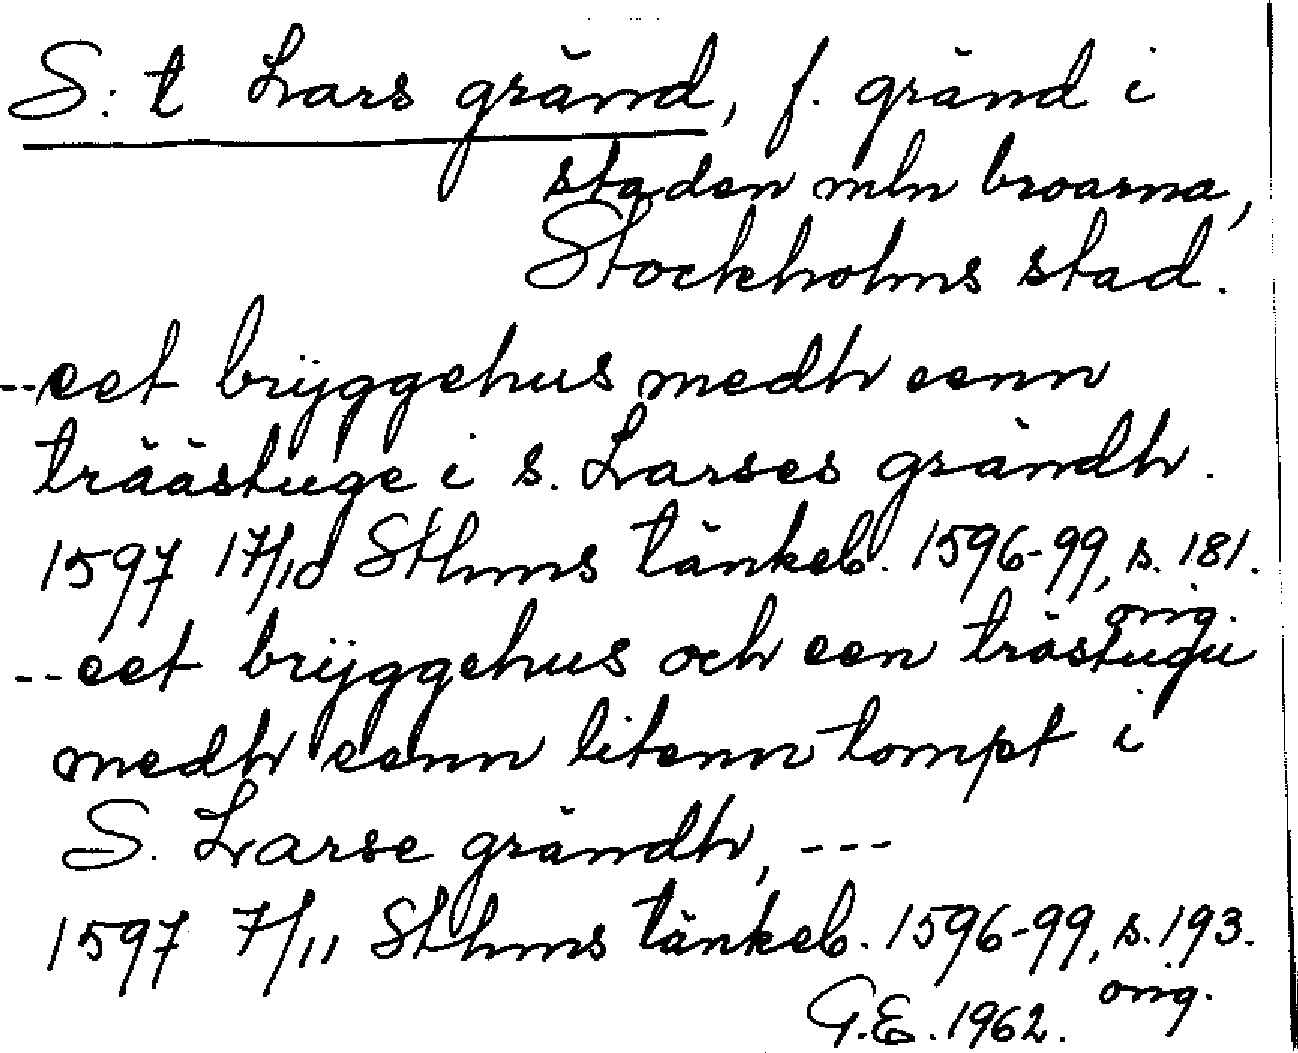 S:t Lars gränd, f. gränd i
staden mln broarna,
Stockholms stad.
--eet brÿggehus medh eenn
träästuge i s. Larses grändh.
1597 17/10 Sthms tänkeb. 1596-99, s. 181.
orig.
--eet brÿggehus och een trästugu
medh eenn litenn tompt i
S. Larse grändh, ---
1597 7/11 Sthms tänkeb. 1596-99, s. 193.
orig.
G.E. 1962.